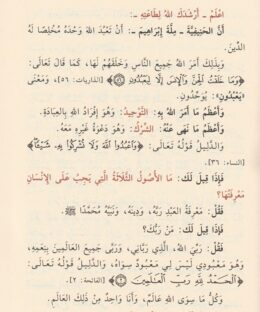 اعْلَمْ ـ أَرْشَدَكَ اللهُ لِطَاعَتِهِ ـ:
أَنَّ الحَنِيفِيَّةَ ـ مِلَّةَ إِبْرَاهِيمَ ـ: أَنْ تَعْبُدَ اللهَ وَحْدَهُ مُخْلِصًا لَهُ
الدِّينَ.
وَبِذَلِكَ أَمَرَ اللهُ جَمِيعَ النَّاسِ وَخَلَقَهُمْ لَهَا، كَمَا قَالَ تَعَالَى:
﴿وَمَا خَلَقْتُ الْجِنَّ وَالْإِنسَ إِلَّا لِيَعْبُدُونِ ۝٥٦﴾ [الذاريات: ٥٦]، وَمَعْنَى
﴿يَعْبُدُونِ﴾: يُوَحِّدُونِ.
وَأَعْظَمُ مَا أَمَرَ اللهُ بِهِ: التَّوْحِيدُ: وَهُوَ إِفْرَادُ اللهِ بِالعِبَادَةِ.
وَأَعْظَمُ مَا نَهَى عَنْهُ: الشِّرْكُ: وَهُوَ دَعْوَةُ غَيْرِهِ مَعَهُ.
وَالدَّلِيلُ قَوْلُهُ تَعَالَى: ﴿وَاعْبُدُوا اللَّهَ وَلَا تُشْرِكُوا بِهِ شَيْئًا﴾
[النساء: ٣٦].
فَإِذَا قِيلَ لَكَ: مَا الأُصُولُ الثَّلَاثَةُ الَّتِي يَجِبُ عَلَى الإِنْسَانِ
مَعْرِفَتُهَا؟
فَقُلْ: مَعْرِفَةُ العَبْدِ رَبَّهُ، وَدِينَهُ، وَنَبِيَّهُ مُحَمَّدًا ﷺ.
فَإِذَا قِيلَ لَكَ: مَنْ رَبُّكَ؟
فَقُلْ: رَبِّيَ اللهُ، الَّذِي رَبَّانِي، وَرَبَّى جَمِيعَ العَالَمِينَ بِنِعَمِهِ،
وَهُوَ مَعْبُودِي لَيْسَ لِي مَعْبُودٌ سِوَاهُ، وَالدَّلِيلُ قَوْلُهُ تَعَالَى:
﴿الْحَمْدُ لِلَّهِ رَبِّ الْعَالَمِينَ ۝٢﴾ [الفاتحة: ٢].
وَكُلُّ مَا سِوَى اللهِ عَالَمٌ، وَأَنَا وَاحِدٌ مِنْ ذَلِكَ العَالَمِ.